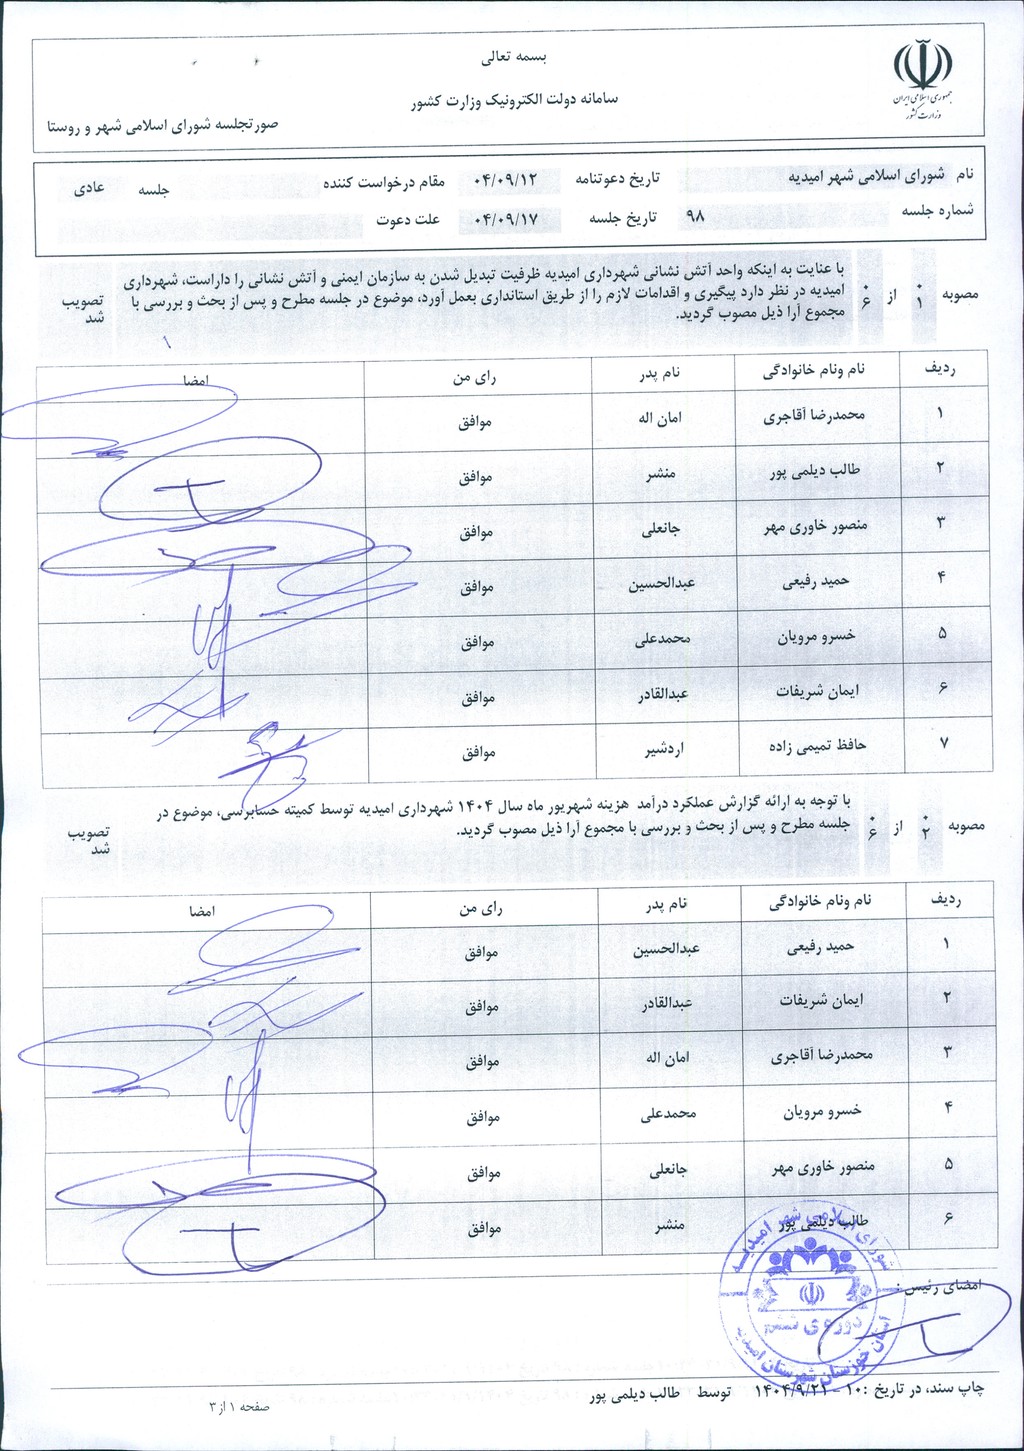 بسمه تعالی
سامانه دولت الکترونیک وزارت کشور
صورتجلسه شورای اسلامی شهر و روستا
جمهوری اسلامی ایران
وزارت کشور
نام شورای اسلامی شهر امیدیه تاریخ دعوتنامه ۰۴/۰۹/۱۲ مقام درخواست کننده جلسه عادی
شماره جلسه ۹۸ تاریخ جلسه ۰۴/۰۹/۱۷ علت دعوت
مصوبه ۰۱ از ۰۶
با عنایت به اینکه واحد آتش نشانی شهرداری امیدیه ظرفیت تبدیل شدن به سازمان ایمنی و آتش نشانی را داراست، شهرداری
امیدیه در نظر دارد پیگیری و اقدامات لازم را از طریق استانداری بعمل آورد، موضوع در جلسه مطرح و پس از بحث و بررسی با
مجموع آرا ذیل مصوب گردید.
تصویب
شد
ردیف نام ونام خانوادگی نام پدر رای من امضا
۱ محمدرضا آقاجری امان اله موافق
۲ طالب دیلمی پور منشر موافق
۳ منصور خاوری مهر جانعلی موافق
۴ حمید رفیعی عبدالحسین موافق
۵ خسرو مرویان محمدعلی موافق
۶ ایمان شریفات عبدالقادر موافق
۷ حافظ تمیمی زاده اردشیر موافق
مصوبه ۰۲ از ۰۶
با توجه به ارائه گزارش عملکرد درآمد هزینه شهریور ماه سال ۱۴۰۴ شهرداری امیدیه توسط کمیته حسابرسی، موضوع در
جلسه مطرح و پس از بحث و بررسی با مجموع آرا ذیل مصوب گردید.
تصویب
شد
ردیف نام ونام خانوادگی نام پدر رای من امضا
۱ حمید رفیعی عبدالحسین موافق
۲ ایمان شریفات عبدالقادر موافق
۳ محمدرضا آقاجری امان اله موافق
۴ خسرو مرویان محمدعلی موافق
۵ منصور خاوری مهر جانعلی موافق
۶ طالب دیلمی پور منشر موافق
امضای رئیس :
شورای اسلامی شهر امیدیه
دوره ی ششم
استان خوزستان شهرستان امیدیه
چاپ سند، در تاریخ :۱۰ - ۱۴۰۴/۹/۲۱ توسط طالب دیلمی پور
صفحه ۱ از ۳